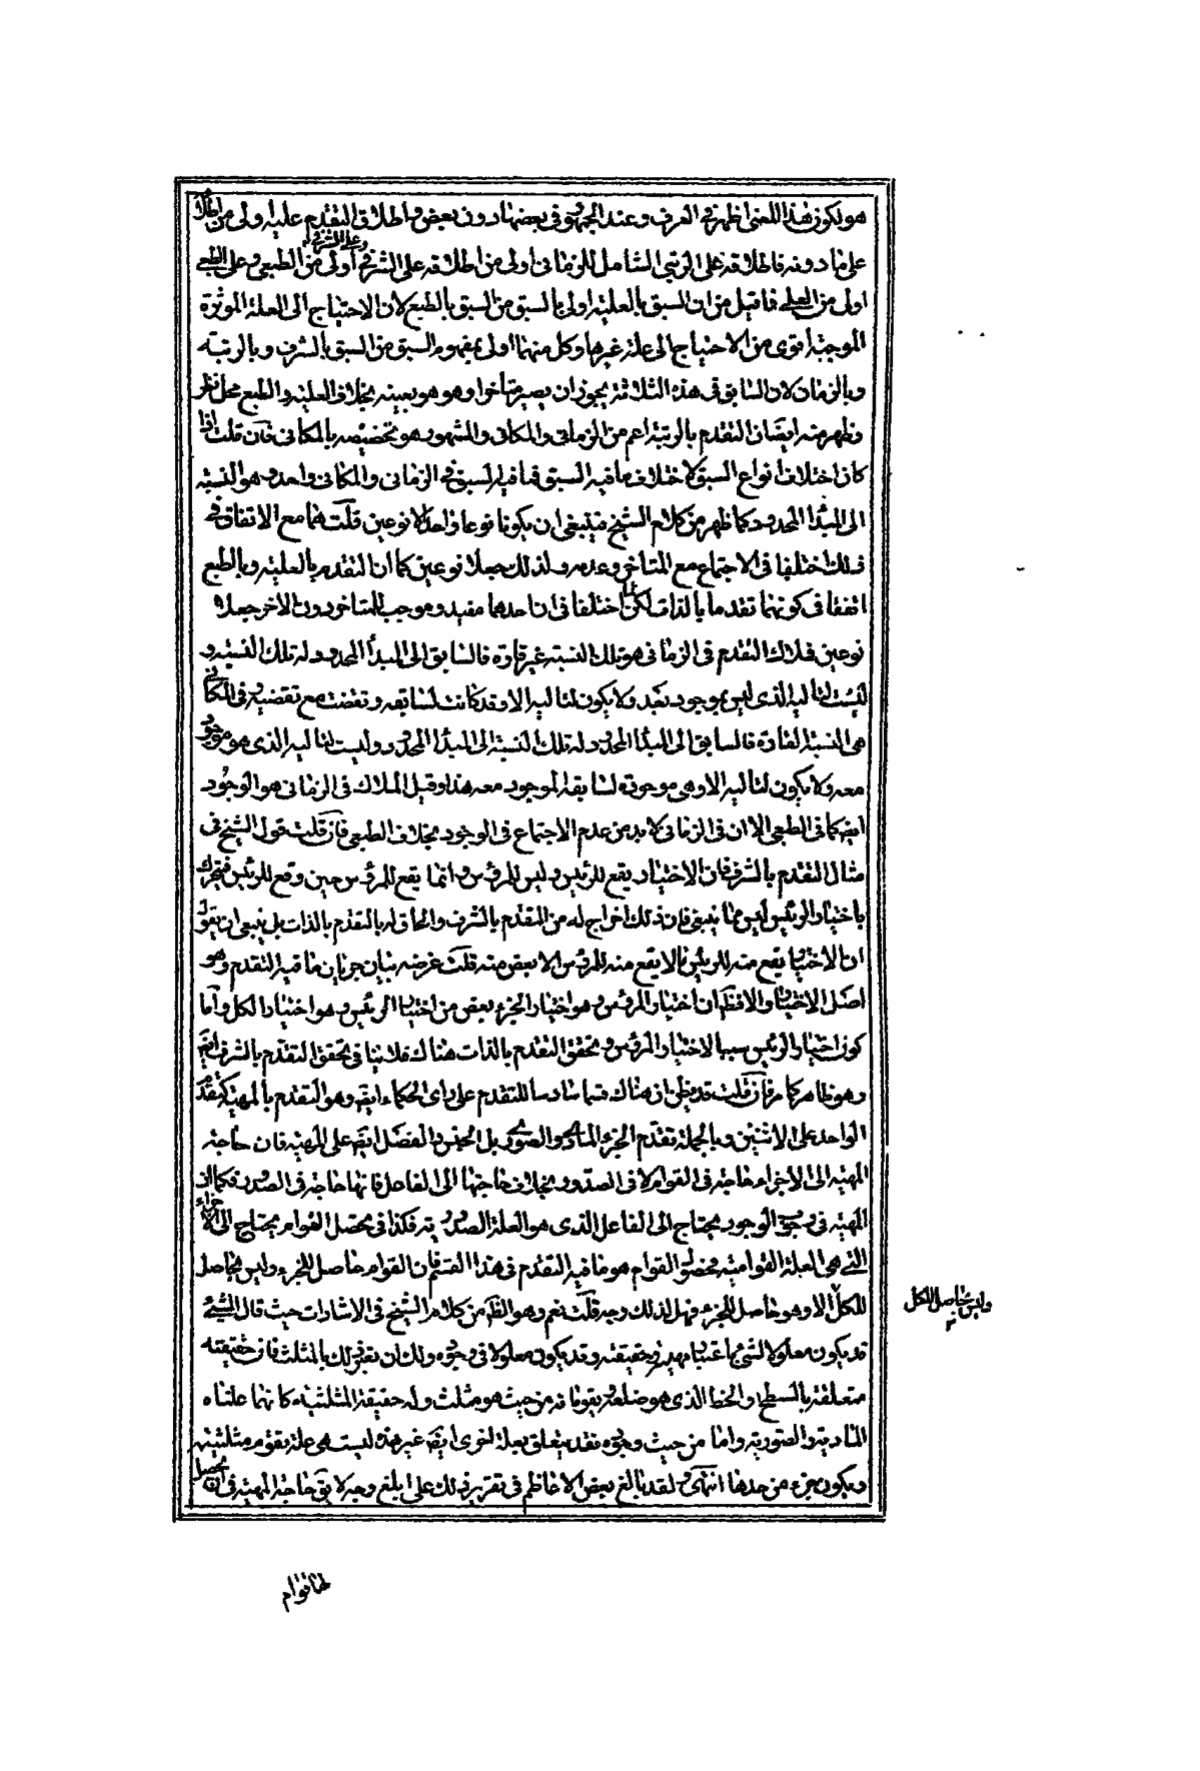 هو لكون هذا المعنى اظهر فى العرف وعند الجمهور فى بعضها دون بعض واطلاق التقدم عليه اولى من اطلاقه
على ما دونه فاطلاقه على الرتبى الشامل للزمانى اولى من اطلاقه على الشرفى وعلى الشرفى اولى من الطبعى وعلى الطبعى
اولى من العلى فما قيل من ان السبق بالعلية اولى بالسبق من السبق بالطبع لان الاحتياج الى العلة الموثرة
الموجبة اقوى من الاحتياج الى علة غيرها وكل منهما اولى بمفهوم السبق من السبق بالشرف وبالرتبة
وبالزمان لان السابق فى هذه الثلاثة يجوز ان يصير متاخرا وهو هو بعينه بخلاف العلية والطبع محل نظر
وظهر منه ايضا ان التقدم بالرتبة اعم من الزمانى والمكانى والمشهور هو تخصيصه بالمكانى فان قلت اذا
كان اختلاف انواع السبق لاختلاف ما فيه السبق فما فيه السبق فى الزمانى والمكانى واحد وهو النسبة
الى المبدأ المحدود كما ظهر من كلام الشيخ فينبغى ان يكونا نوعا واحدا لا نوعين قلت هما مع الاتفاق فى
ذلك اختلفا فى الاجتماع مع المتاخر وعدمه ولذلك جعلا نوعين كما ان التقدم بالعلية وبالطبع
اتفقا فى كونهما تقدما بالذات لكن لما اختلفا فى ان احدهما مفيد وموجب للمتاخر دون الاخر جعلا
نوعين فملاك التقدم فى الزمانى هو تلك النسبة غير قارة فالسابق الى المبدأ المحدود له تلك النسبة و
ليست لتاليه الذى ليس بموجود بعد ولا يكون لتاليه الا وقد كانت لسابقه وتقضت مع تقضيه وفى المكانى
هى النسبة القارة فالسابق الى المبدأ المحدود له تلك النسبة الى المبدأ المحدود وليست لتاليه الذى هو موجود
معه ولا يكون لتاليه الا وهى موجودة لسابقه الموجود معه هذا وقيل الملاك فى الزمانى هو الوجود
ايضا كما فى الطبعى الا ان فى الزمانى لا بد من عدم الاجتماع فى الوجود بخلاف الطبعى فان قلت قول الشيخ فى
مثال التقدم بالشرف فان الاختيار يقع للرئيس وليس للمرؤس وانما يقع للمرؤس حين وقع للرئيس فيتحرك
باختيار الرئيس ليس مما ينبغى فان ذلك اخراج له من التقدم بالشرف والحاق له بالتقدم بالذات بل ينبغى ان يقول
ان الاختيار يقع منه للرئيس ما لا يقع منه للمرؤس الا بعض منه قلت غرضه بيان جريان ما فيه التقدم وهو
اصل الاختيار والا فظ ان اختيار المرؤس وهو اختيار الجزء بعض من اختيار الرئيس وهو اختيار الكل واما
كون اختيار الرئيس سببا لاختيار المرؤس وتحقق التقدم بالذات هناك فلا ينافى تحقق التقدم بالشرف ايضا
وهو ظاهر كما مر فان قلت قد يظن ان هناك قسما سادسا للتقدم على راى الحكماء ايضا وهو التقدم بالمهية كتقدم
الواحد على الاثنين وبالجملة تقدم الجزء المادى والصورى بل الجنس والفصل ايضا على المهية فان حاجة
المهية الى الاجزاء حاجة فى القوام لا فى الصدور بخلاف حاجتها الى الفاعل فانها حاجة فى الصدور فكما ان
المهية فى وجوب الوجود يحتاج الى الفاعل الذى هو العلة الصدورية فكذا فى محصل القوام يحتاج الى الاجزاء
التى هى العلة القوامية فحصول القوام هو ما فيه التقدم فى هذا القسم فان القوام حاصل للجزء وليس بحاصل
للكل الا وهو حاصل للجزء فهل لذلك وجه قلت نعم وهو الظ من كلام الشيخ فى الاشارات حيث قال الشىء
قد يكون معلولا لشىء باعتبار مهيته وحقيقته وقد يكون معلولا فى وجوده ولك ان تعتبر ذلك بالمثلث فان حقيقته
متعلقة بالسطح والخط الذى هو ضلعه يقومانه من حيث هو مثلث وله حقيقة المثلثية كانهما علتاه
المادية والصورية واما من حيث وجوده فقد يتعلق بعلة اخرى ايضا غير هذه ليست هى علة تقوم مثلثيته
ويكون جزء من حدها انتهى ولقد بالغ بعض الاعاظم فى تقرير ذلك على ابلغ وجه لا يق حاجة المهية فى ان يحصل
وليس بحاصل للكل
لها قوام